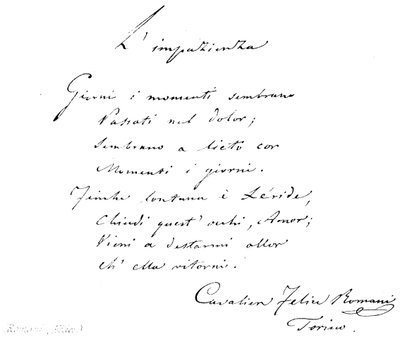 L'impazienza
Giorni i momenti sembrano
Passati nel dolor;
Sembrano a lieto cor
Momenti i giorni.
Finchè lontana è Léride,
Chiudi quest'occhi, Amor;
Vieni a destarmi allor
Ch'ella ritorni.
Cavalier Felice Romani
Torino.